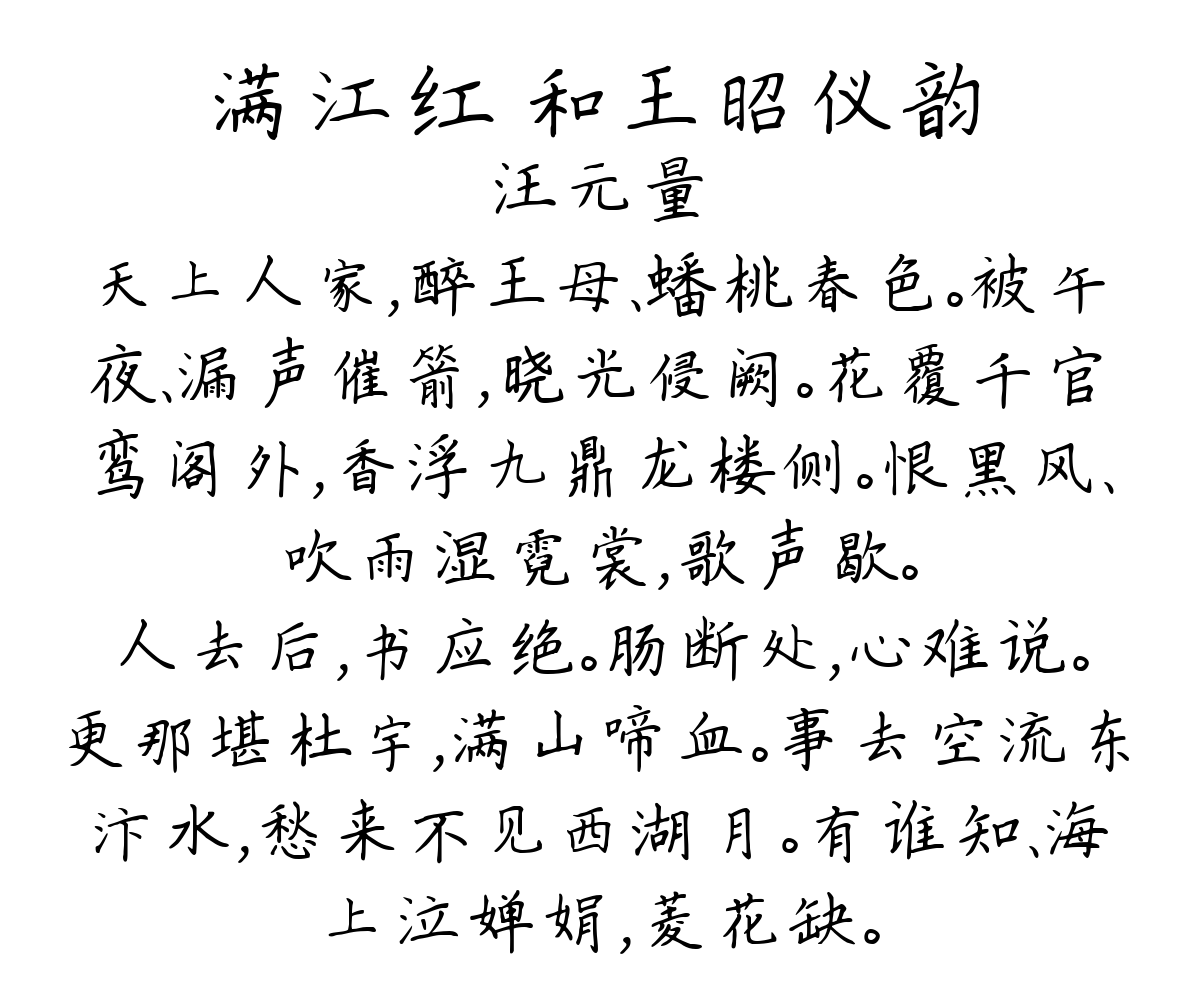 满江红 和王昭仪韵
汪元量
天上人家,醉王母、蟠桃春色。被午
夜、漏声催箭,晓光侵阙。花覆千官
鸾阁外,香浮九鼎龙楼侧。恨黑风、
吹雨湿霓裳,歌声歇。
人去后,书应绝。肠断处,心难说。
更那堪杜宇,满山啼血。事去空流东
汴水,愁来不见西湖月。有谁知、海
上泣婵娟,菱花缺。